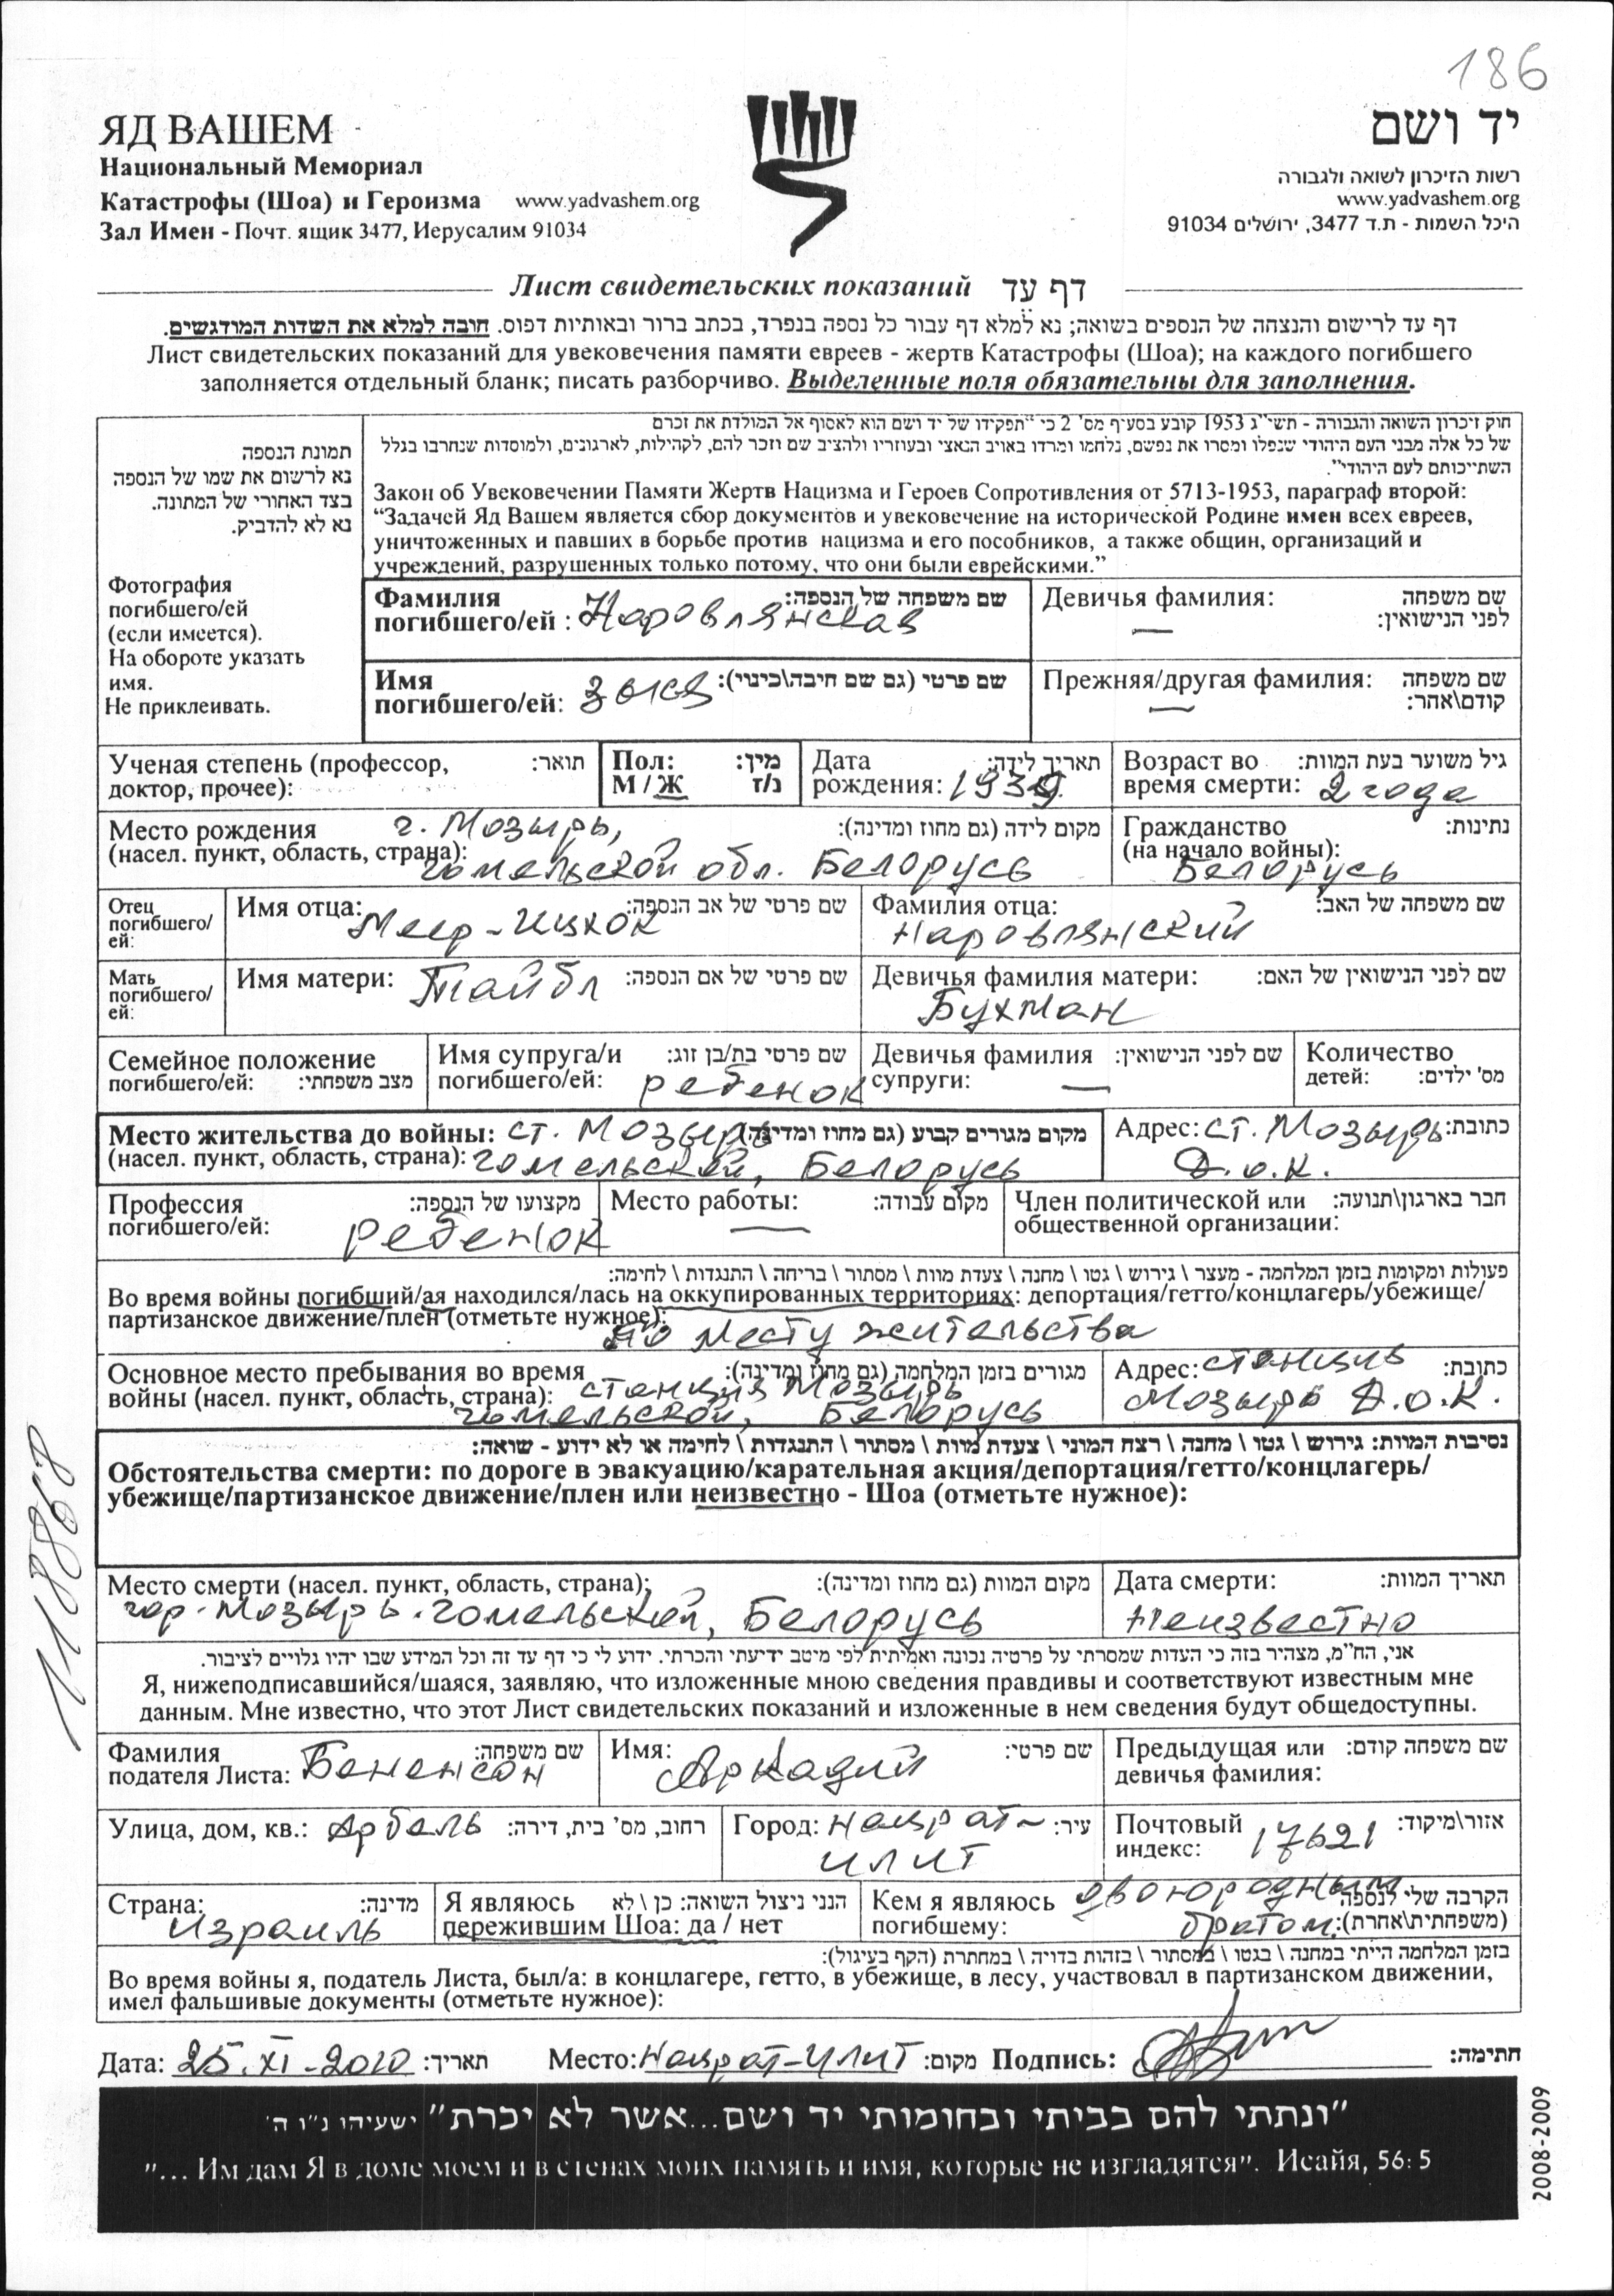 186
ЯД ВАШЕМ
Национальный Мемориал
Катастрофы (Шоа) и Героизма www.yadvashem.org
Зал Имен - Почт. ящик 3477, Иерусалим 91034
יד ושם
רשות הזיכרון לשואה ולגבורה
www.yadvashem.org
היכל השמות - ת.ד 3477, ירושלים 91034
Лист свидетельских показаний דף עד
דף עד לרישום והנצחה של הנספים בשואה; נא למלא דף עבור כל נספה בנפרד, בכתב ברור ובאותיות דפוס. חובה למלא את השדות המודגשים.
Лист свидетельских показаний для увековечения памяти евреев - жертв Катастрофы (Шоа); на каждого погибшего
заполняется отдельный бланк; писать разборчиво. Выделенные поля обязательны для заполнения.
תמונת הנספה
נא לרשום את שמו של הנספה
בצד האחורי של המתונה.
נא לא להדביק.
Фотография
погибшего/ей
(если имеется).
На обороте указать
имя.
Не приклеивать.
חוק זיכרון השואה והגבורה - תשי"ג 1953 קובע בסעיף מס' 2 כי "תפקידו של יד ושם הוא לאסוף אל המולדת את זכרם
של כל אלה מבני העם היהודי שנפלו ומסרו את נפשם, נלחמו ומרדו באויב הנאצי ובעוזריו ולהציב שם וזכר להם, לקהילות, לארגונים, ולמוסדות שנחרבו בגלל
השתייכותם לעם היהודי".
Закон об Увековечении Памяти Жертв Нацизма и Героев Сопротивления от 5713-1953, параграф второй:
“Задачей Яд Вашем является сбор документов и увековечение на исторической Родине имен всех евреев,
уничтоженных и павших в борьбе против нацизма и его пособников, а также общин, организаций и
учреждений, разрушенных только потому, что они были еврейскими.”
Фамилия שם משפחה של הנספה:
погибшего/ей : Наровлянская
Девичья фамилия: שם משפחה
לפני הנישואין: —
Имя שם פרטי (גם שם חיבה\כינוי):
погибшего/ей: Зыся
Прежняя/другая фамилия: שם משפחה
קודם\אחר: —
Ученая степень (профессор, תואר:
доктор, прочее):
Пол: מין:
М / Ж נ/ז
Дата תאריך לידה:
рождения: 1939
Возраст во גיל משוער בעת המוות:
время смерти: 2 года
Место рождения г. Мозырь, מקום לידה (גם מחוז ומדינה):
(насел. пункт, область, страна): Гомельской обл. Белорусь
Гражданство נתינות:
(на начало войны): Белорусь
Отец
погибшего/
ей:
Имя отца: Меер-Ицхок שם פרטי של אב הנספה:
Фамилия отца: שם משפחה של האב:
Наровлянский
Мать
погибшего/
ей:
Имя матери: Тайбл שם פרטי של אם הנספה:
Девичья фамилия матери: שם לפני הנישואין של האם:
Бухман
Семейное положение
погибшего/ей: מצב משפחתי:
Имя супруга/и שם פרטי בת/בן זוג:
погибшего/ей: ребенок
Девичья фамилия שם לפני הנישואין:
супруги: —
Количество
детей: מס' ילדים:
Место жительства до войны: ст. Мозырь מקום מגורים קבוע (גם מחוז ומדינה)
(насел. пункт, область, страна): Гомельской, Белорусь
Адрес: ст. Мозырь כתובת:
Д.о.К.
Профессия מקצועו של הנספה:
погибшего/ей: ребенок
Место работы: מקום עבודה:
—
Член политической или חבר בארגון\תנועה:
общественной организации:
פעולות ומקומות בזמן המלחמה - מעצר \ גירוש \ גטו \ מחנה \ צעדת מוות \ מסתור \ בריחה \ התנגדות \ לחימה:
Во время войны погибший/ая находился/лась на оккупированных территориях: депортация/гетто/концлагерь/убежище/
партизанское движение/плен (отметьте нужное): по месту жительства
Основное место пребывания во время מגורים בזמן המלחמה (גם מחוז ומדינה):
войны (насел. пункт, область, страна): станция Мозырь
Гомельской, Белорусь
Адрес: станция כתובת:
Мозырь Д.о.К.
נסיבות המוות: גירוש \ גטו \ מחנה \ רצח המוני \ צעדת מוות \ מסתור \ התנגדות \ לחימה או לא ידוע - שואה:
Обстоятельства смерти: по дороге в эвакуацию/карательная акция/депортация/гетто/концлагерь/
убежище/партизанское движение/плен или неизвестно - Шоа (отметьте нужное):
Место смерти (насел. пункт, область, страна): מקום המוות (גם מחוז ומדינה):
гор. Мозырь. Гомельской, Белорусь
Дата смерти: תאריך המוות:
Неизвестно
אני, הח"מ, מצהיר בזה כי העדות שמסרתי על פרטיה נכונה ואמיתית לפי מיטב ידיעתי והכרתי. ידוע לי כי דף עד זה וכל המידע שבו יהיו גלויים לציבור.
Я, нижеподписавшийся/шаяся, заявляю, что изложенные мною сведения правдивы и соответствуют известным мне
данным. Мне известно, что этот Лист свидетельских показаний и изложенные в нем сведения будут общедоступны.
Фамилия שם משפחה:
подателя Листа: Бененсон
Имя: Аркадий שם פרטי:
Предыдущая или שם משפחה קודם:
девичья фамилия:
Улица, дом, кв.: Арбель רחוב, מס' בית, דירה:
Город: Нацрат- עיר:
илит
Почтовый אזור\מיקוד:
индекс: 17621
Страна: מדינה:
Израиль
Я являюсь הנני ניצול השואה: כן \ לא
пережившим Шоа: да / нет
Кем я являюсь двоюродным הקרבה שלי לנספה
погибшему: братом. (משפחתית\אחרת):
בזמן המלחמה הייתי במחנה \ בגטו \ במסתור \ בזהות בדויה \ במחתרת (הקף בעיגול):
Во время войны я, податель Листа, был/а: в концлагере, гетто, в убежище, в лесу, участвовал в партизанском движении,
имел фальшивые документы (отметьте нужное):
Дата: 25.XI-2010 תאריך: Место: Нацрат-Илит מקום: Подпись: חתימה:
"ונתתי להם בביתי ובחומותי יד ושם...אשר לא יכרת" ישעיהו נ"ו ה'
"... Им дам Я в доме моем и в стенах моих память и имя, которые не изгладятся". Исайя, 56: 5
2008-2009
1118868